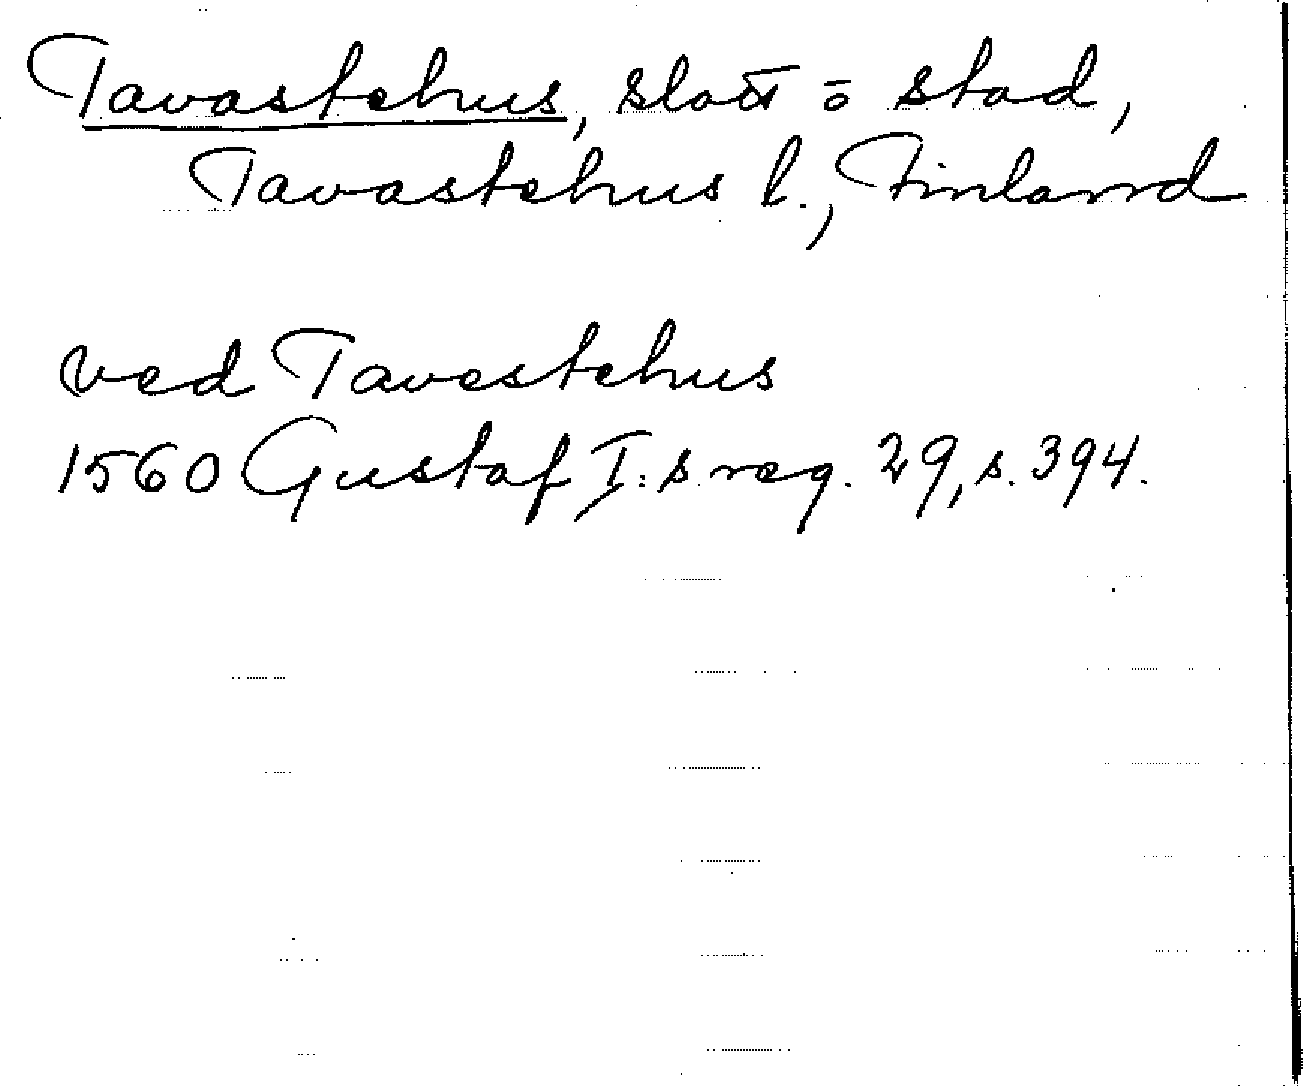 Tavastehus, slott o stad,
Tavastehus l., Finland
ved Tavestehus
1560 Gustaf I:s reg. 29, s. 394.